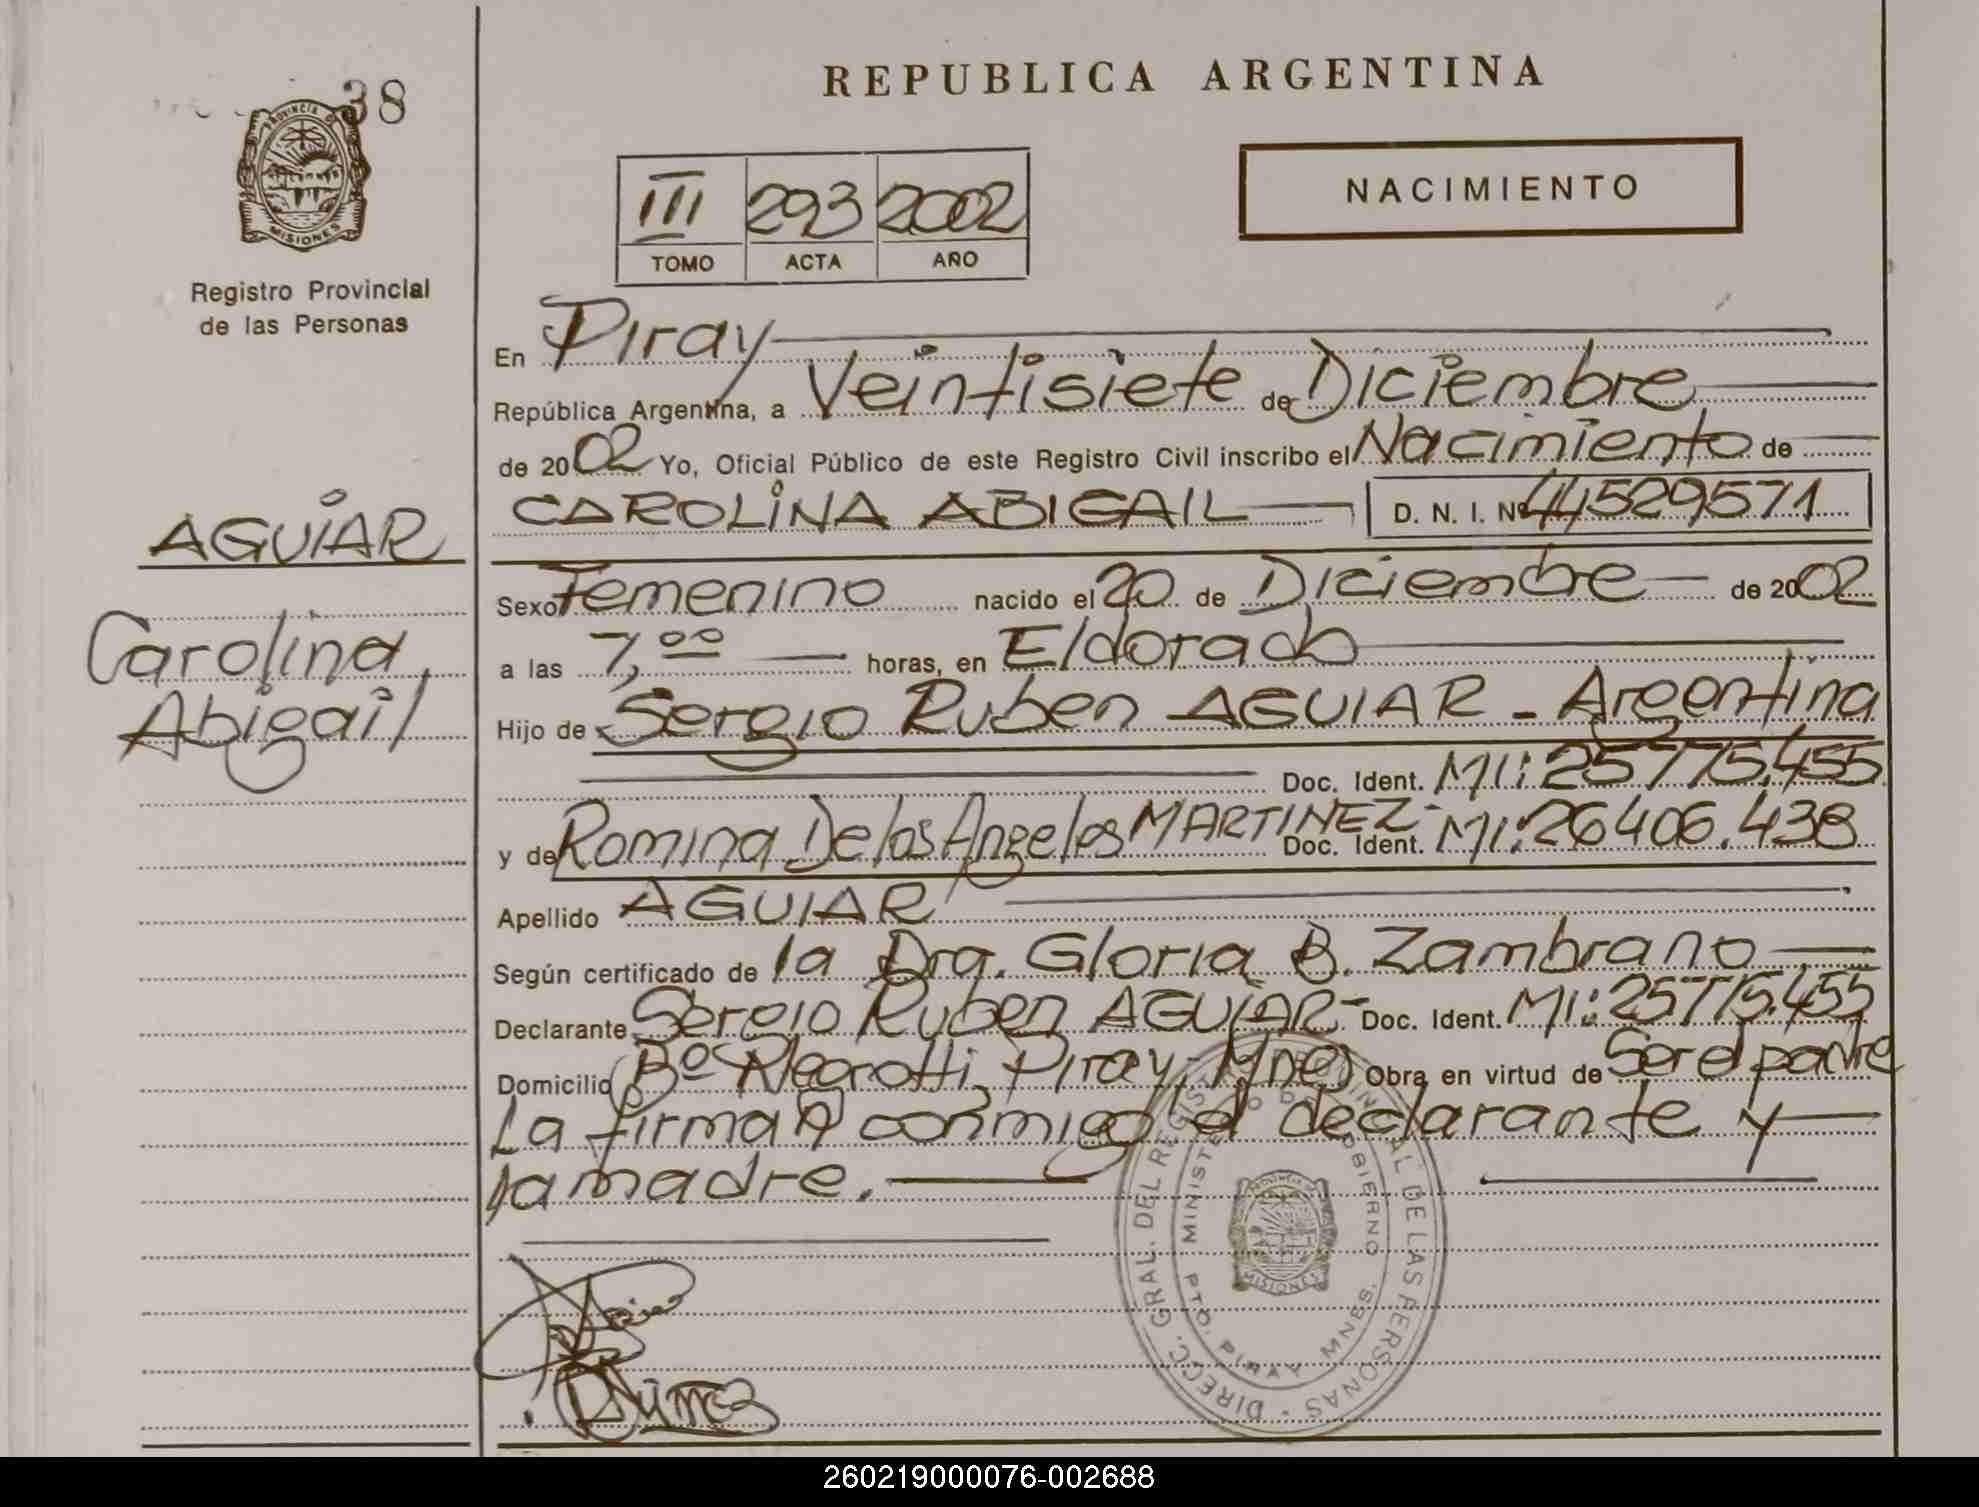 38
PROVINCIA DE
MISIONES
Registro Provincial
de las Personas
AGUIAR
Carolina
Abigail
REPUBLICA ARGENTINA
III 293 2002
TOMO ACTA AÑO
NACIMIENTO
En Piray
República Argentina, a Veintisiete de Diciembre
de 2002 Yo, Oficial Público de este Registro Civil inscribo el Nacimiento de
CAROLINA ABIGAIL D. N. I. Nº 44529571
Sexo Femenino nacido el 20 de Diciembre de 2002
a las 7,00 horas, en Eldorado
Hijo de Sergio Ruben AGUIAR - Argentina
Doc. Ident. MI: 25775.455
y de Romina De los Angeles MARTINEZ - Doc. Ident. MI: 26406.438
Apellido AGUIAR
Según certificado de la Dra. Gloria B. Zambrano
Declarante Sergio Ruben AGUIAR - Doc. Ident. MI: 25775.455
Domicilio Bº Piray, Mnes Obra en virtud de Ser el padre
La firman conmigo el declarante y
la madre.
DIRECC. GRAL. DEL REGISTRO PROVINCIAL DE LAS PERSONAS
MINISTERIO DE GOBIERNO
PTO. PIRAY MNES.
MISIONES
260219000076-002688